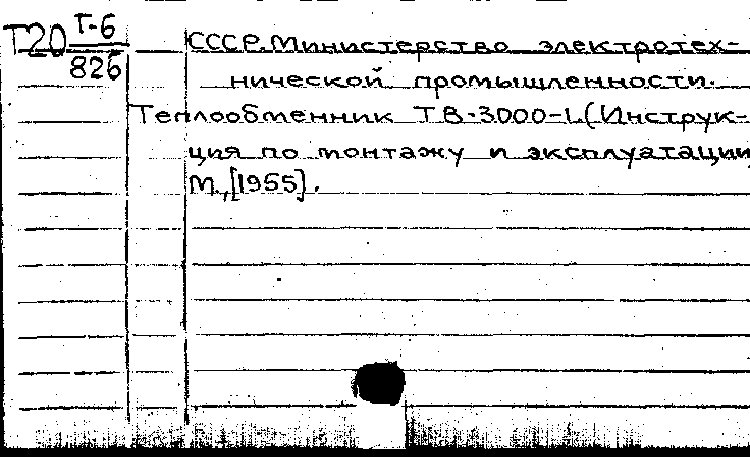 Т20 Т-6
826
СССР. Министерство электротех-
нической промышленности.
Теплообменник ТВ-3000-1. (Инструк-
ция по монтажу и эксплуатации
М., [1955].